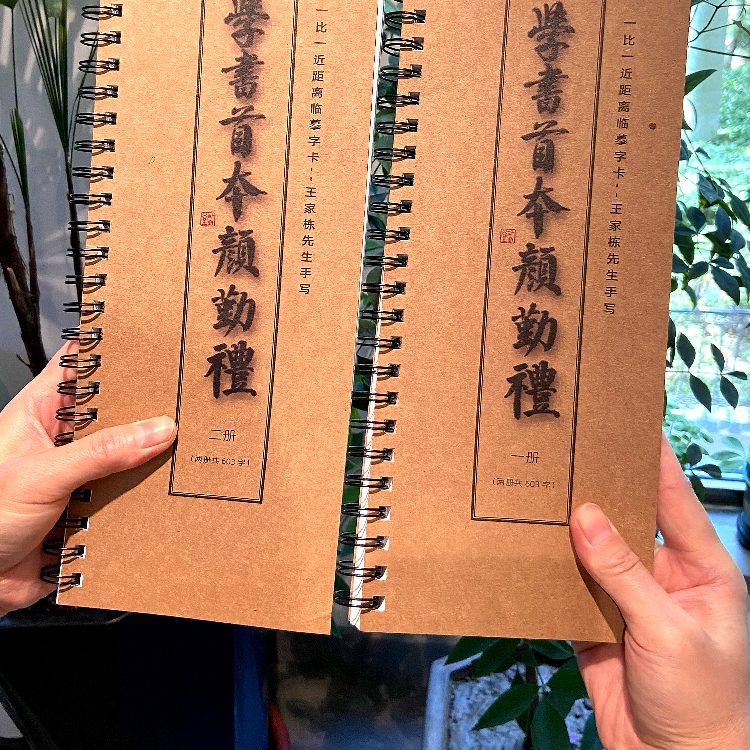 學書首本顏勤禮
一比一近距离临摹字卡--王家栋先生手写
二册
(两册共603字)
學書首本顏勤禮
一比一近距离临摹字卡--王家栋先生手写
一册
(两册共603字)